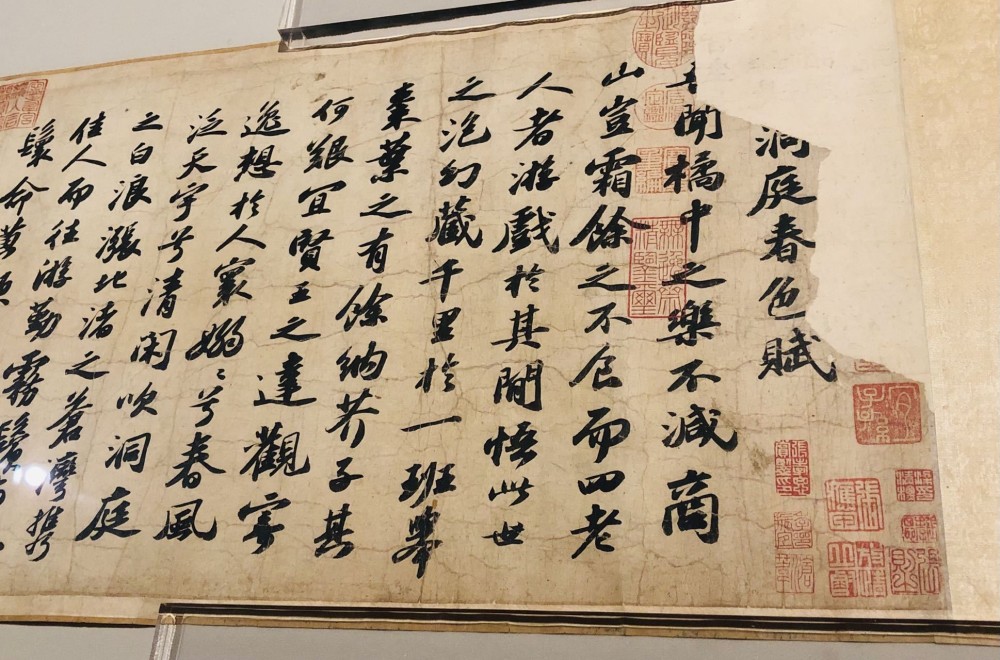 洞庭春色賦
聞橘中之樂不減商
山豈霜餘之不食而四老
人者游戲於其間悟此世
之泡幻藏千里於一班舉
棗葉之有餘納芥子其
何艱宜賢王之達觀寄
逸想於人寰嫋〻兮春風
泛天宇兮清閑吹洞庭
之白浪漲北渚之蒼灣攜
佳人而往游勤霧鬢
鬟命黃